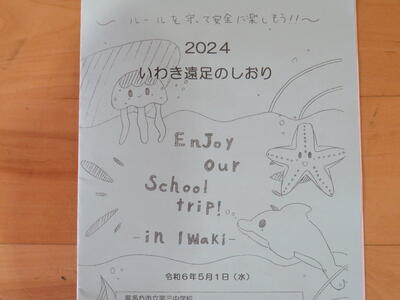 〜ルールを守って安全に楽しもう!!〜
2024
いわき遠足のしおり
EnJoy
our
School
trip!
-in Iwaki-
令和6年5月1日(水)
喜多方市立第三中学校